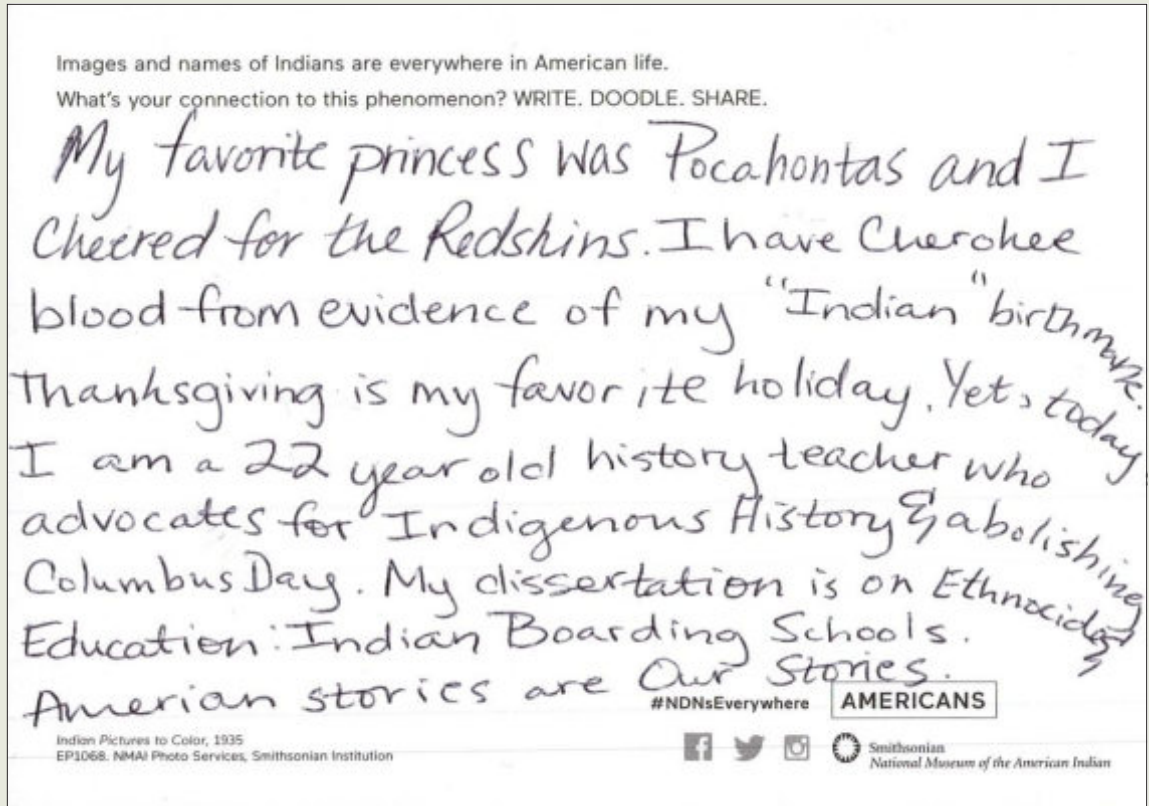 Images and names of Indians are everywhere in American life.
What's your connection to this phenomenon? WRITE. DOODLE. SHARE.
My favorite princess was Pocahontas and I
Cheered for the Redskins. I have Cherokee
blood from evidence of my "Indian" birthmark.
Thanksgiving is my favorite holiday. Yet, today,
I am a 22 year old history teacher who
advocates for Indigenous History & abolishing
Columbus Day. My dissertation is on Ethnocide &
Education: Indian Boarding Schools.
Amerian stories are Our Stories.
#NDNsEverywhere AMERICANS
Indian Pictures to Color, 1935
EP1068. NMAI Photo Services, Smithsonian Institution
Smithsonian
National Museum of the American Indian